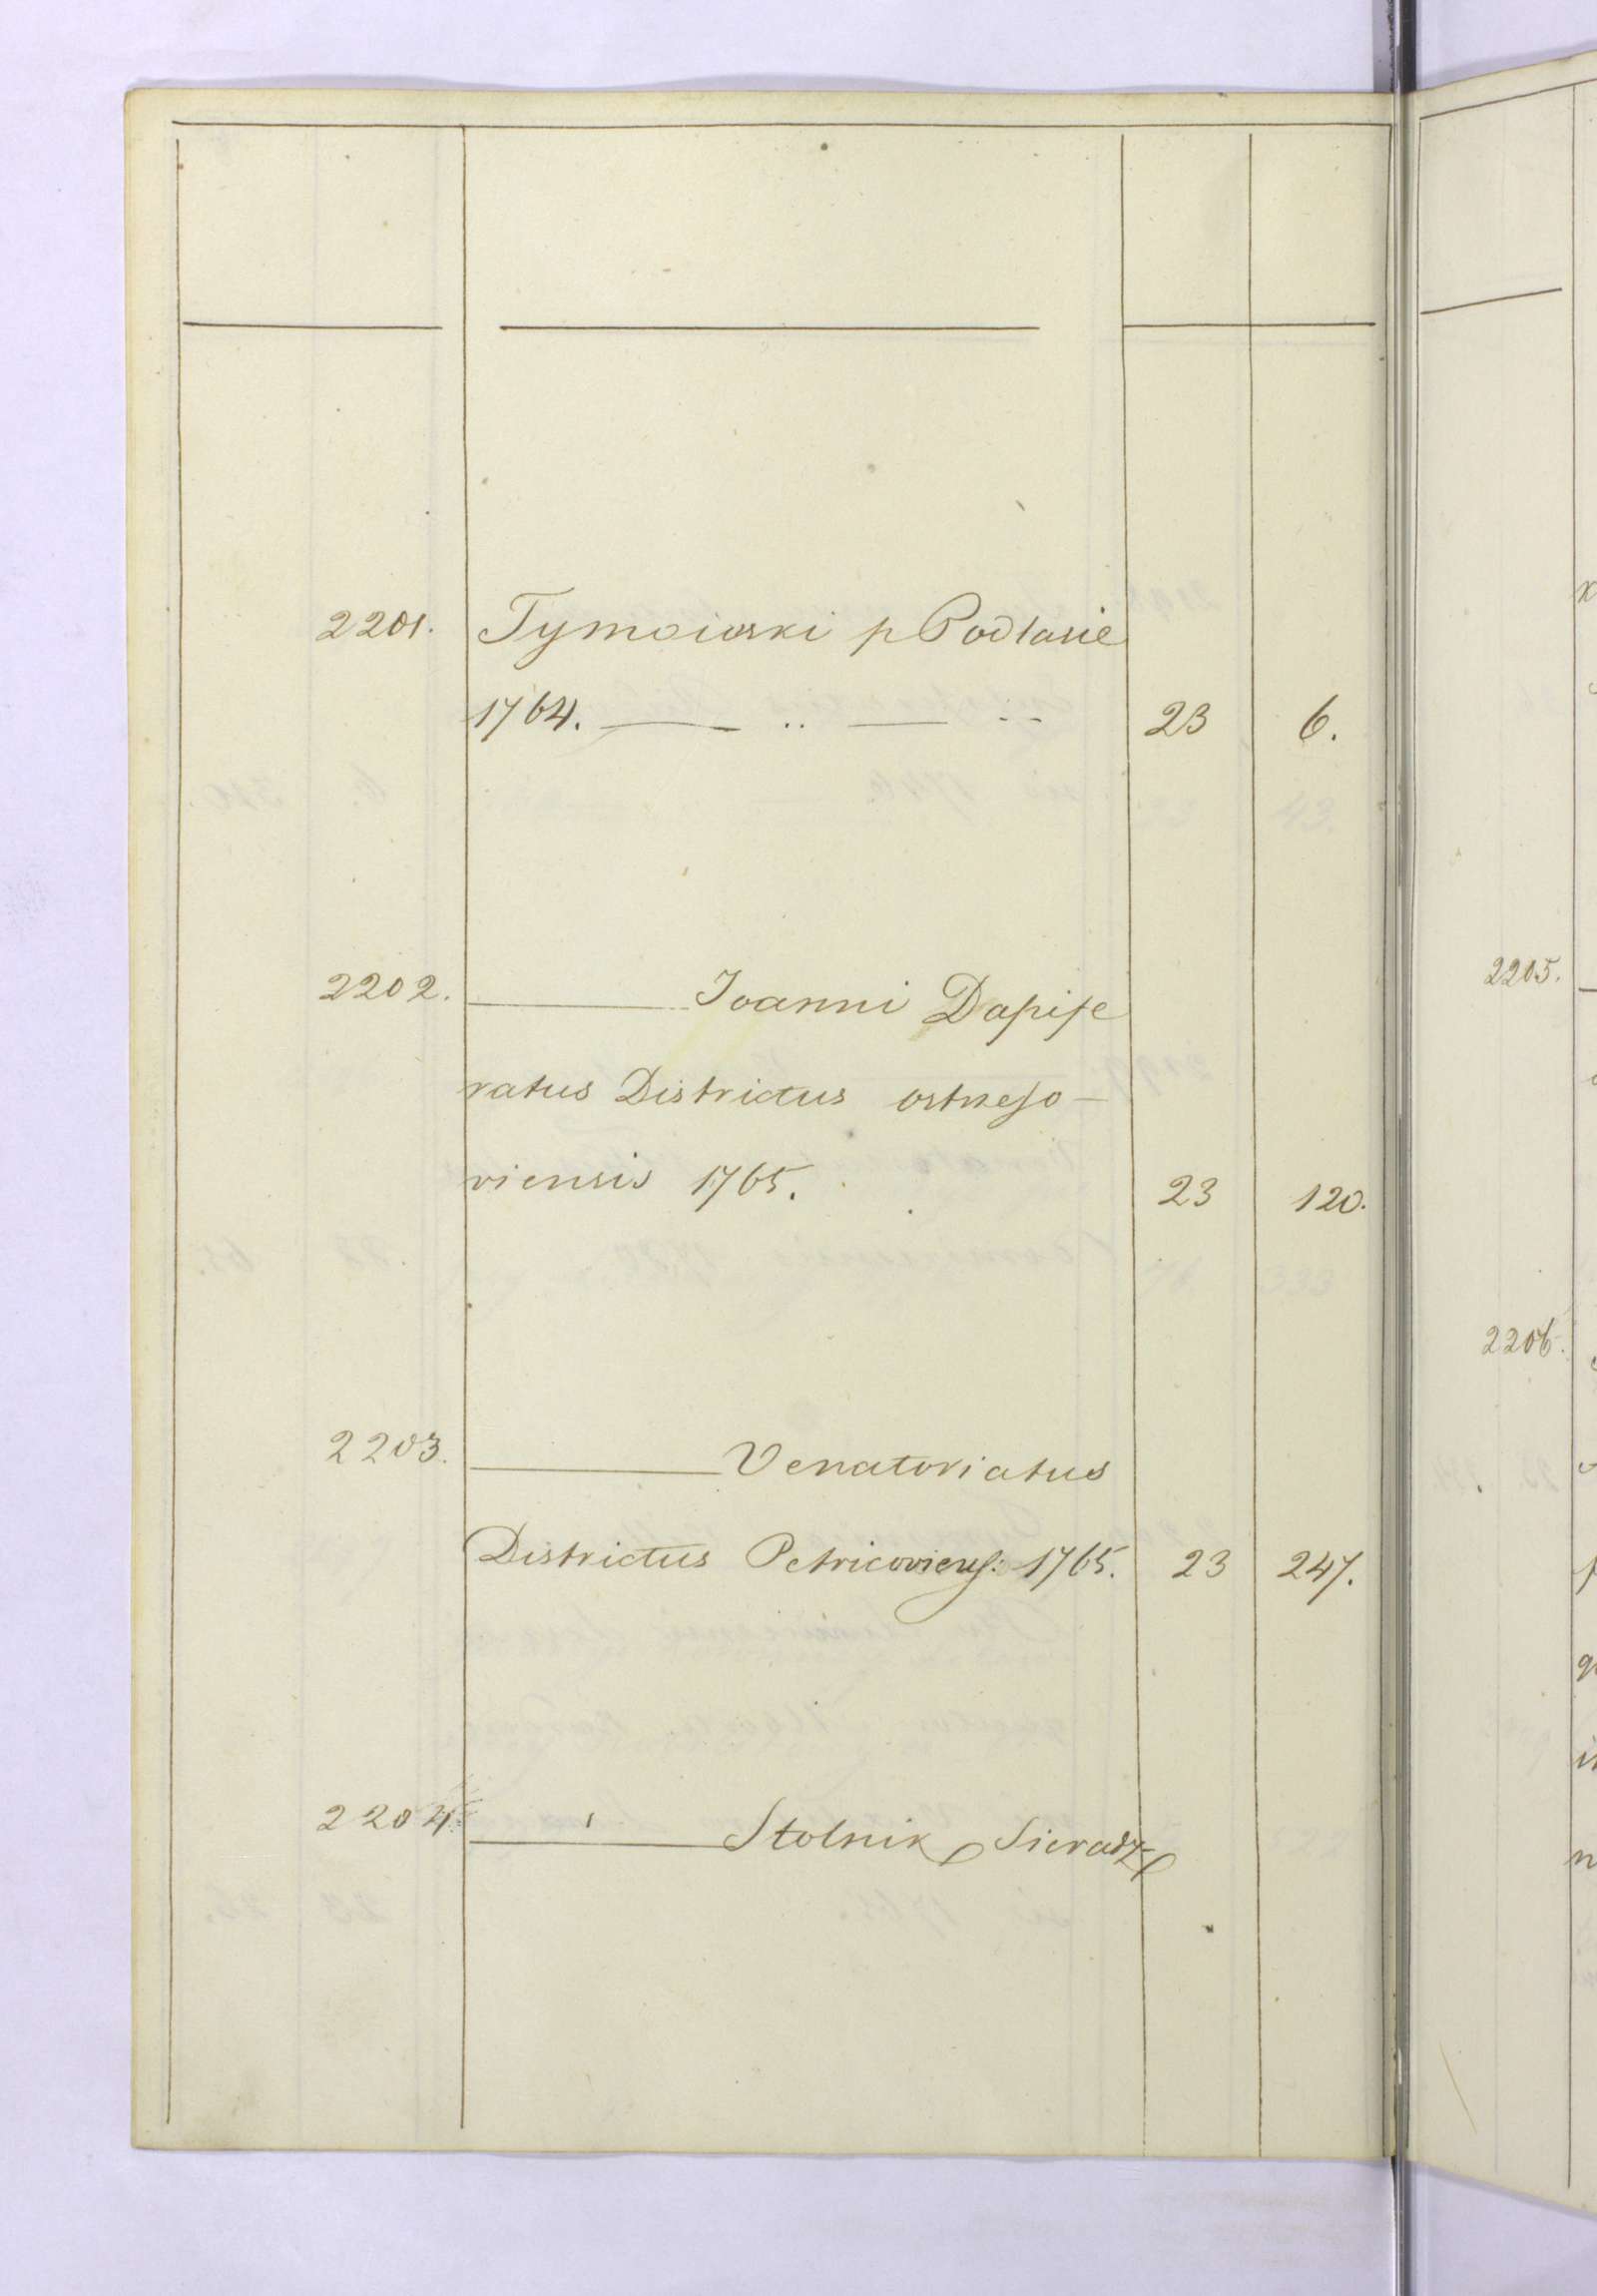 2201. Tymoiński p Podlasie
1764. — .. — .. 23 6.
2202. — Ioanni Dapife
ratus Districtus ostrzeso-
viensis 1765. 23 120.
2203. — Venatoriatus
Districtus Petricoviens: 1765. 23 247.
2204. — Stolnik Sieradz
2205.
2206.